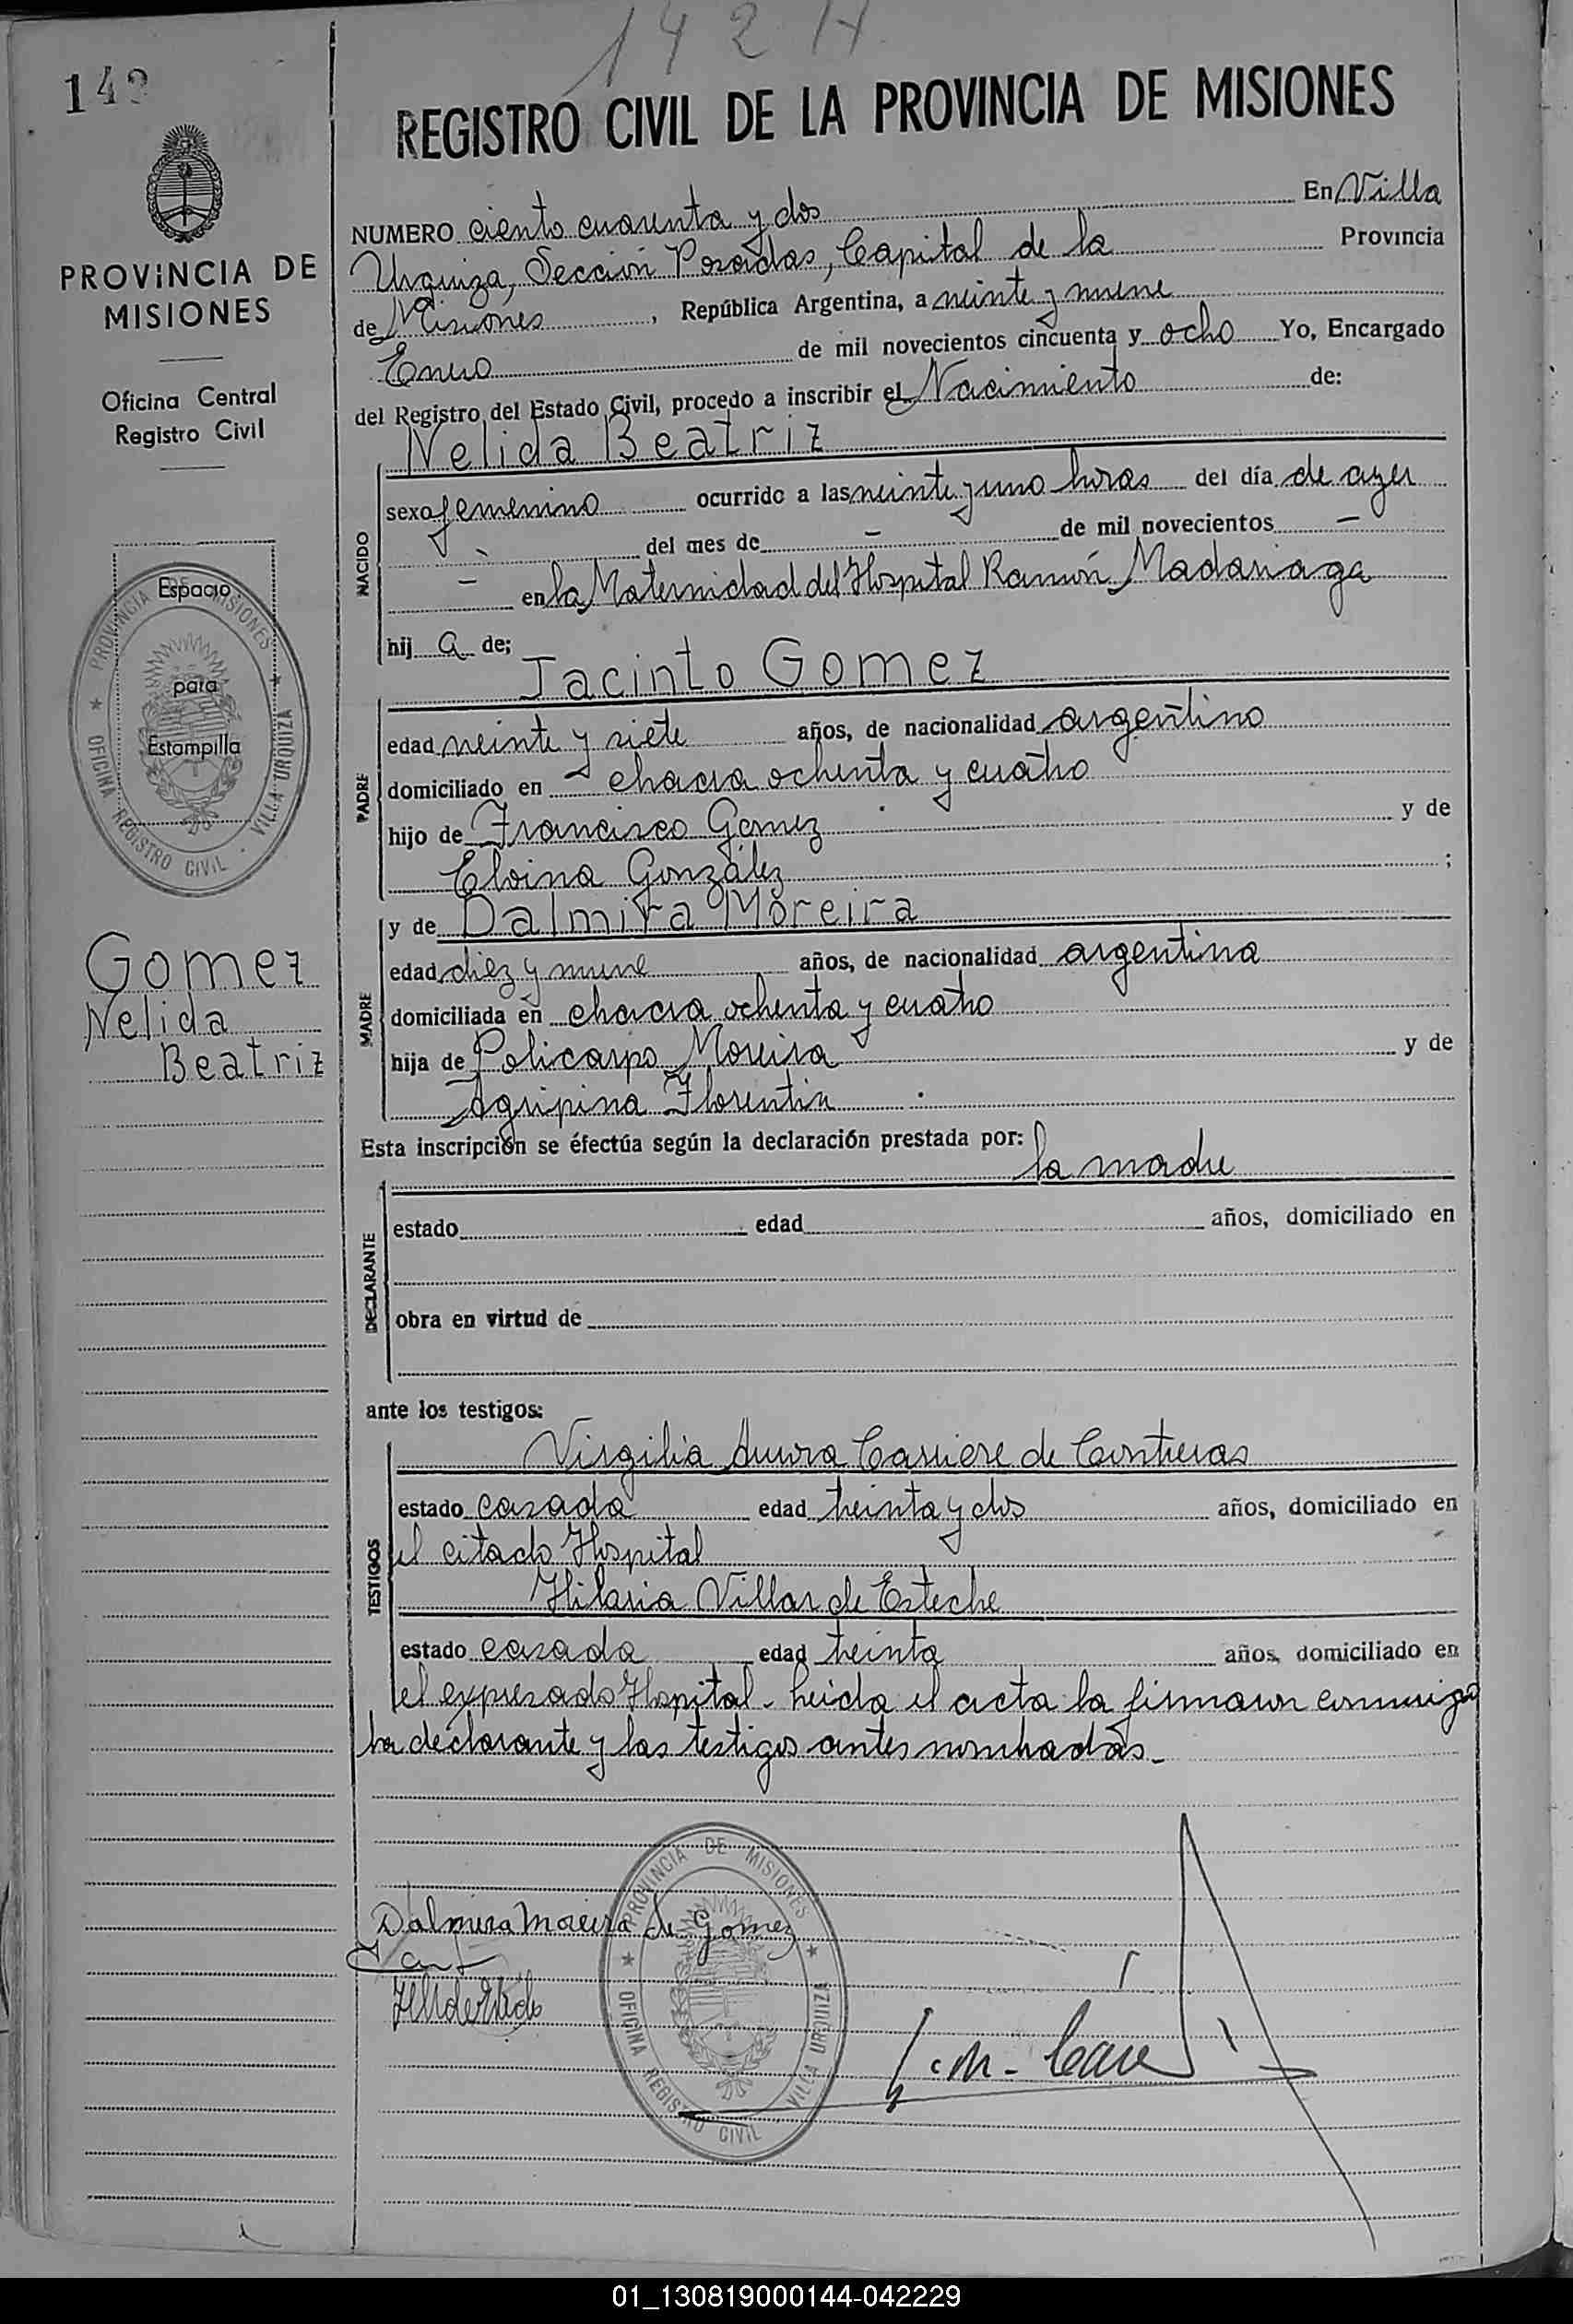 142 H
142
REGISTRO CIVIL DE LA PROVINCIA DE MISIONES
PROVINCIA DE
MISIONES
Oficina Central
Registro Civil
NUMERO ciento cuarenta y dos En Villa
Urquiza, Sección Posadas, Capital de la Provincia
de Misiones, República Argentina, a veinte y nueve
Enero de mil novecientos cincuenta y ocho Yo, Encargado
del Registro del Estado Civil, procedo a inscribir el Nacimiento de:
Nelida Beatriz
NACIDO
sexo femenino ocurrido a las veinte y uno horas del día de ayer
- del mes de - de mil novecientos -
- en la Maternidad del Hospital Ramón Madariaga
hij a de;
Jacinto Gomez
PADRE
edad veinte y siete años, de nacionalidad argentino
domiciliado en chacra ochenta y cuatro
hijo de Francisco Gomez y de
Elvina González ;
y de Dalmira Moreira
MADRE
edad diez y nueve años, de nacionalidad argentina
domiciliada en chacra ochenta y cuatro
hija de Policarpo Moreira y de
Agripina Florentin .
Esta inscripción se éfectúa según la declaración prestada por:
la madre
DECLARANTE
estado edad años, domiciliado en
obra en virtud de
ante los testigos:
TESTIGOS
Virgilia Aurora Carriere de Contreras
estado casada edad treinta y dos años, domiciliado en
el citado Hospital
Hilaria Villar de Esteche
estado casada edad treinta años, domiciliado en
el expresado Hospital - Leida el acta la firmaron conmigo
la declarante y las testigos antes nombradas.-
Espacio
para
Estampilla
PROVINCIA DE MISIONES
OFICINA REGISTRO CIVIL - VILLA URQUIZA
Gomez
Nelida
Beatriz
Dalmira Moreira de Gomez
PROVINCIA DE MISIONES
OFICINA REGISTRO CIVIL VILLA URQUIZA
01_130819000144-042229